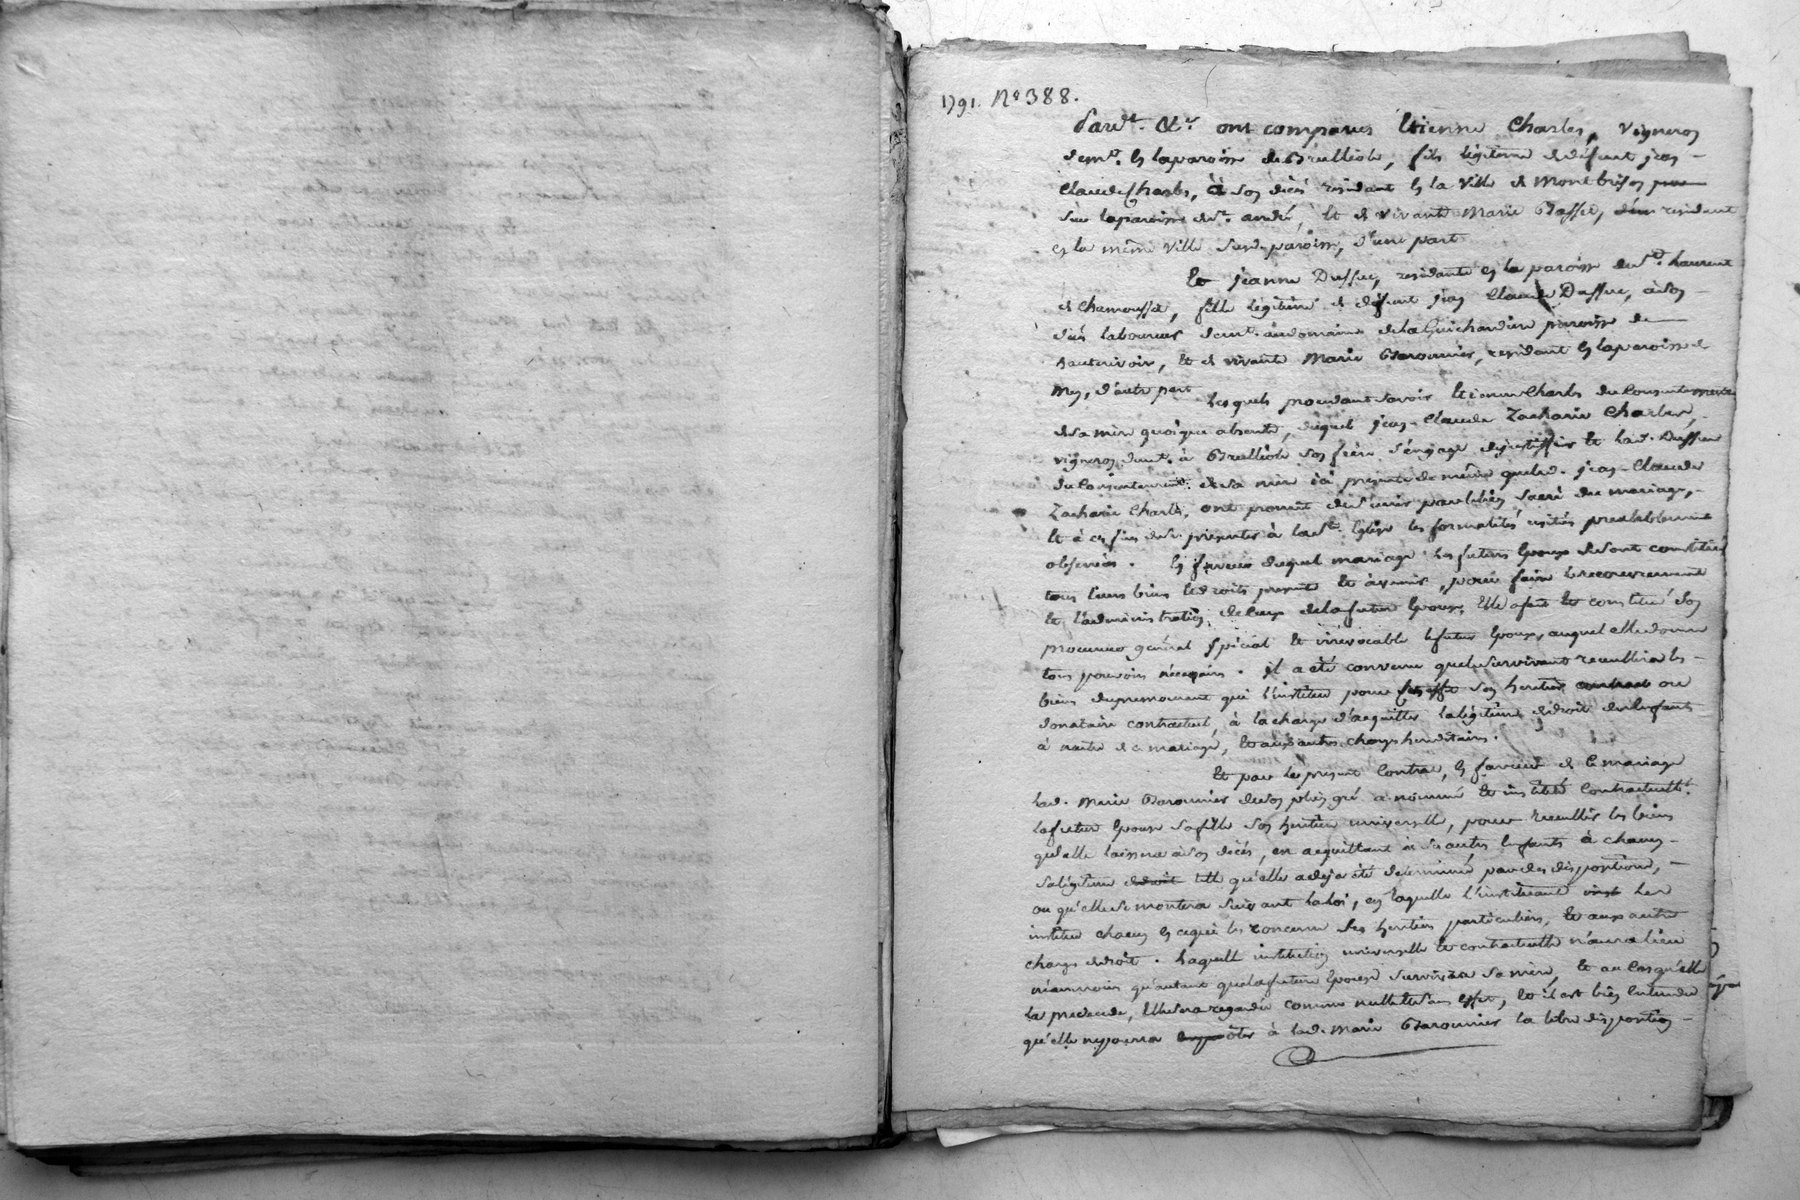 1791. N° 388.
Pardt. &c. ont comparus Etienne Charles, vigneron
demt. en la paroisse de Brulliole, fils légitime de défunt jean
Claude Charles, à son décès résidant en la ville de Montbrison
sur la paroisse de St. andré, et de vivante Marie Basset, résidant
en la même ville susd. paroisse, d'une part
Et jeanne Dussuc, résidante en la paroisse de St. Laurent
de Chamousset, fille légitime de défunt jean Claude Dussuc, à son
décès laboureur demt. au domaine de la Guichardiere paroisse de
hauterivoir, et de vivante Marie Baronnier, résidant en la paroisse de
Mey, d'autre part
Lesquels procedant savoir Etienne Charles du Consentement
de sa mère quoique absente, duquel jean-Claude Zacharie Charles,
vigneron demt. à Brulliole son frère s'engage de justiffier et lad. Dussuc
du Consentement de sa mère ici présente de même que led. jean-Claude
Zacharie Charles, ont promit de s'unir par le lien sacré du mariage,
Et à ces fins de se présenter à la Ste. Eglise les formalités usités préalablement
observées. En faveur duquel mariage les futurs Epoux se sont constitués
tous leurs biens et droits présent et à venir, pour faire le recouvrement
Et l'administration de ceux de la future Epouse, Elle a fait et constitué son
procureur général spécial et irrévocable le futur Epoux, auquel elle donne
tous pouvoirs nécessaires. il a été convenu que le survivant recueillira les
biens du premourant qui l'institue pour son heritier ou
donataire contractuel, à la charge d'acquitter la légitime de droit des Enfants
à naitre de ce mariage, et aux autres charges hereditaires.
Et par le présent Contrat, en faveur de ce mariage
lad. Marie Baronnier de son plein gré a nommé et institué Contractuellt.
la future Epouse sa fille son heritiere universelle, pour recueillir les biens
qu'elle laissera à son décès, en acquittant à ses autres Enfants à chacun
sa légitime telle qu'elle a déja été déterminée par des dispositions,
ou qu'elle se montera suivant la loi, en laquelle l'instituante les
institue chacun en ce qui les concerne ses heritiers particuliers, et aux autres
charges de droit. Laquelle institution universelle et contractuelle n'aura lieu
néanmoins qu'autant que la future Epouse survivra sa mère, et au Cas qu'elle
la prédécede, Elle sera regardée comme nulle et sans effet, et il est bien Entendu
qu'elle ne pourra ôter à lad. Marie Baronnier la libre disposition